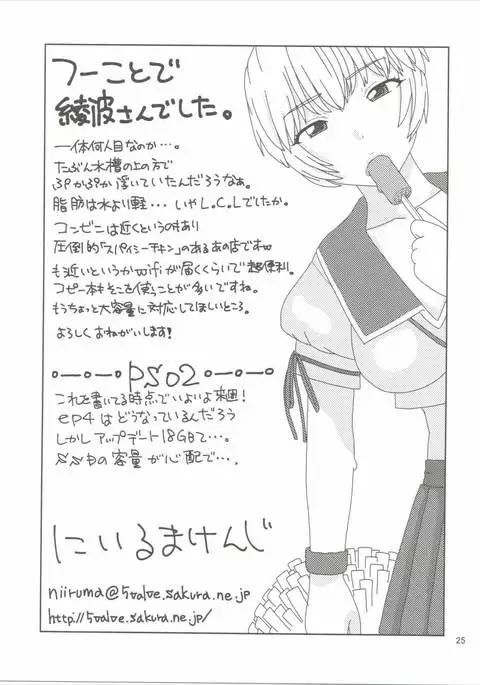 フーことで
綾波さんでした。
一体何人目なのか…。
たぶん水槽の上の方で
ぷかぷか浮いていたんだろうなぁ。
脂肪は水より軽… いやL.C.Lでしたか。
コンビニは近くというのもあり
圧倒的「スパイシーチキン」のあるあの店ですw
も近いというかwifiが届くくらいで超便利。
コピー本もそこを使うことが多いですね。
もうちょっと大容量に対応してほしいところ。
よろしくおねがいします!
PSO2
これを書いてる時点でいよいよ来週!
ep4はどうなっているんだろう
しかしアップデート18GBて…。
SSDの容量が心配で…。
にいるまけんじ
niiruma@5valve.sakura.ne.jp
http://5valve.sakura.ne.jp/
25